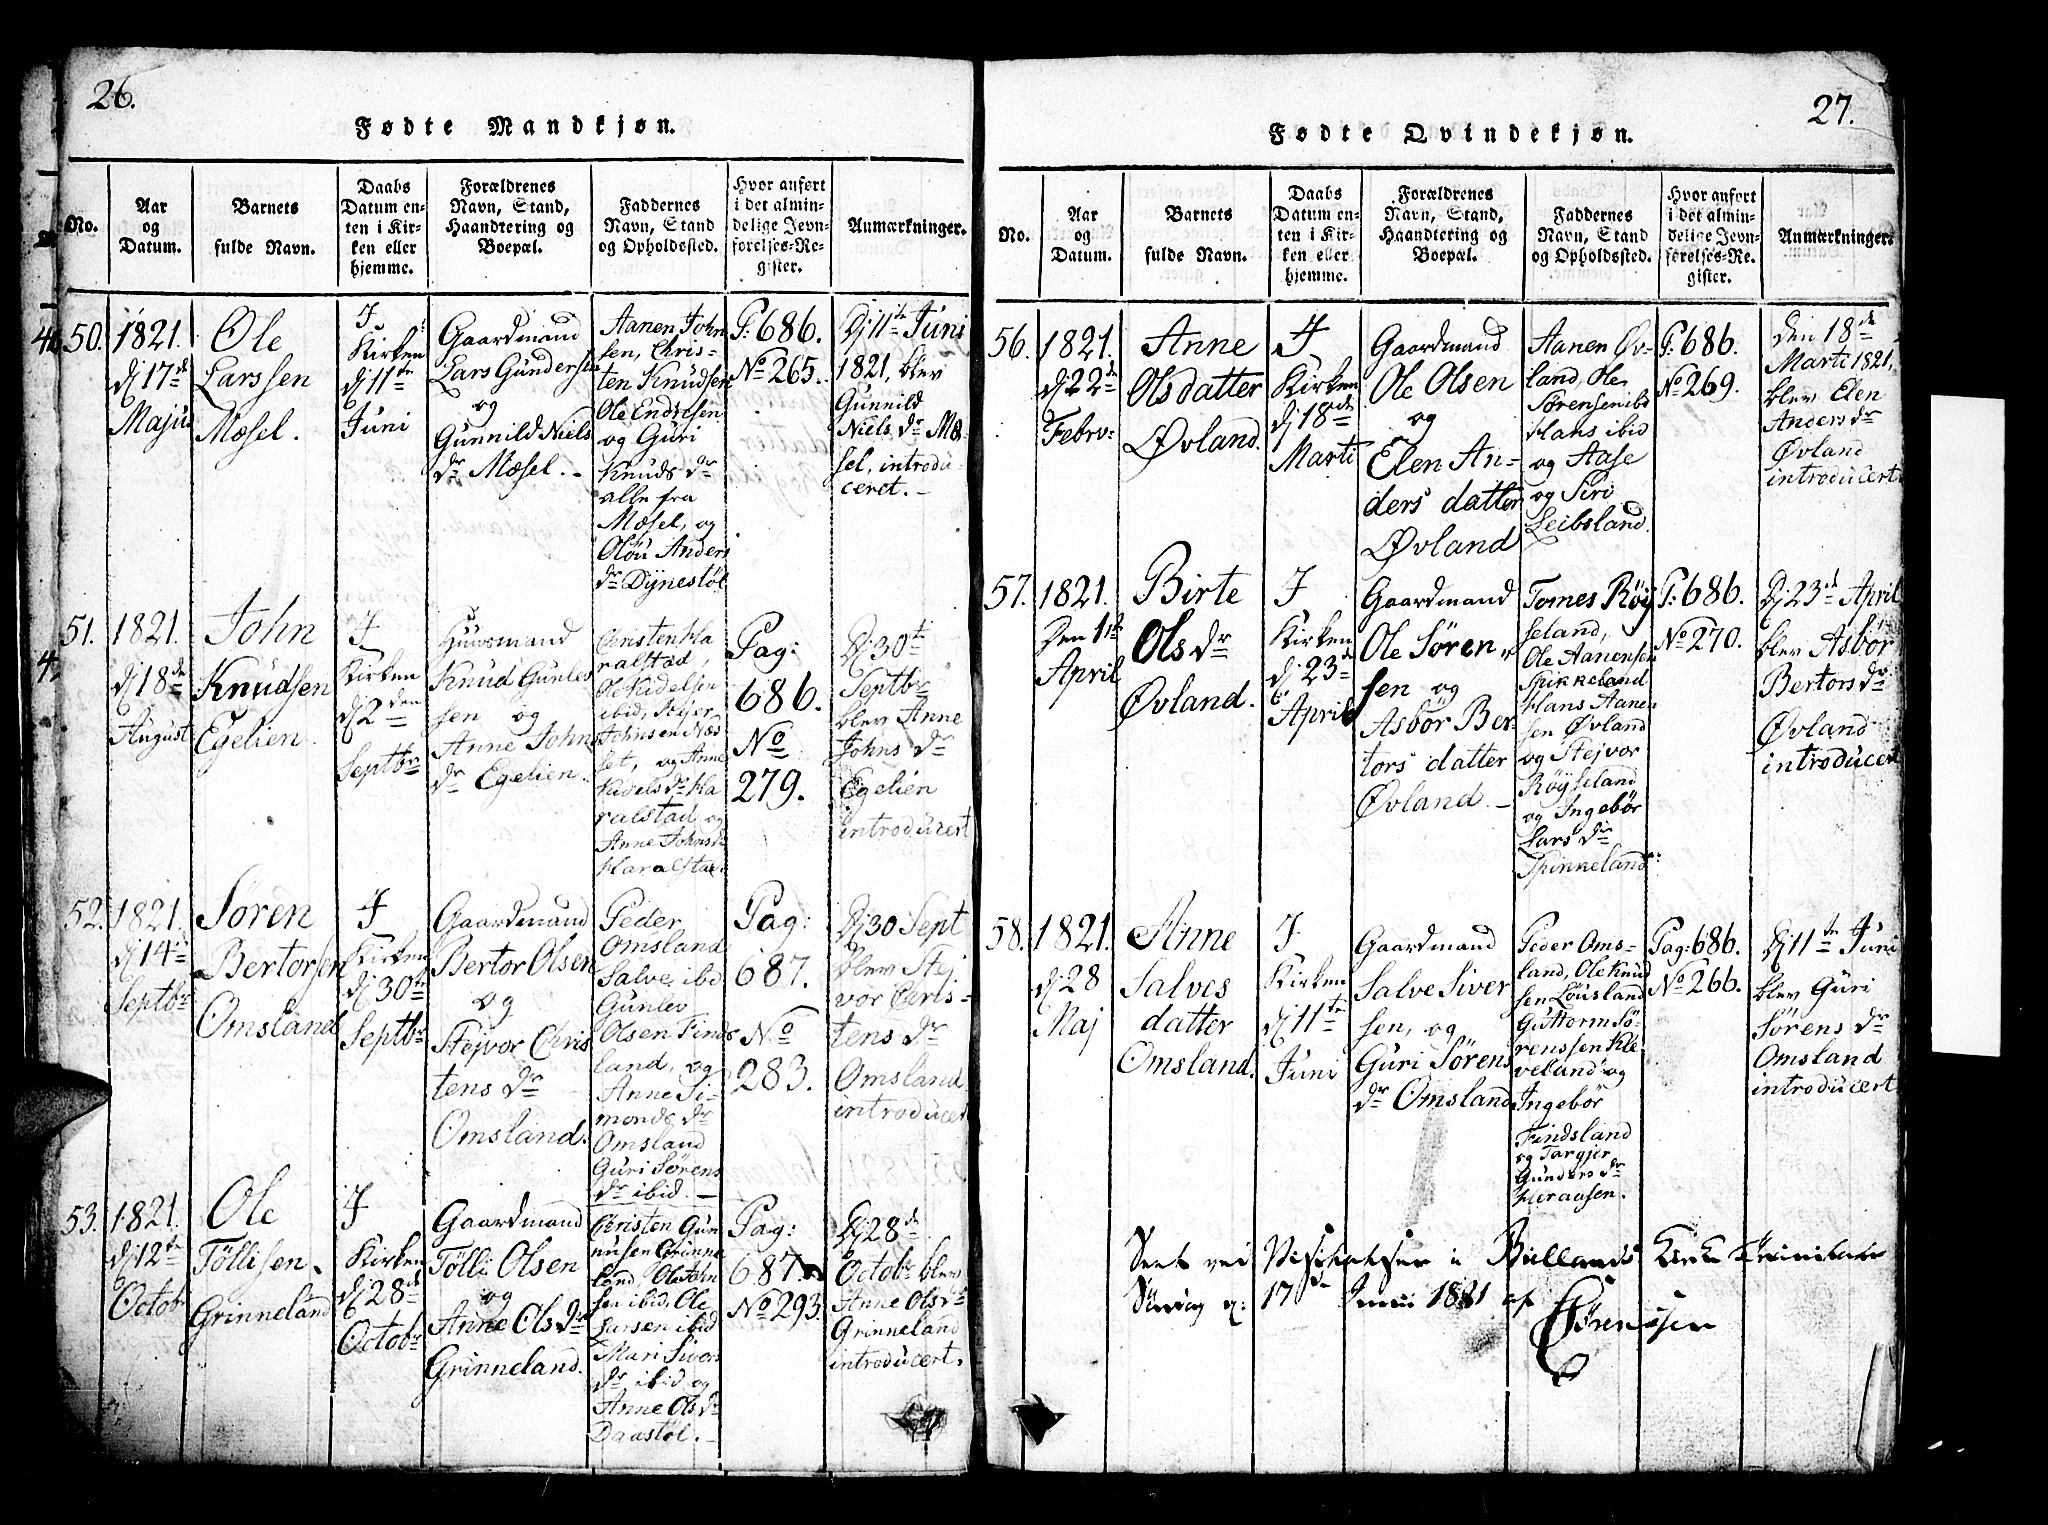 26.
Fødte Mandkjøn.
No.
Aar
og
Datum.
Barnets
fulde Navn.
Daabs
Datum en-
ten i Kir-
ken eller
hjemme.
Forældrenes
Navn, Stand,
Haandtering og
Boepæl.
Faddernes
Navn, Stand
og Opholdssted.
Hvor anført
i det almin-
delige Jevn-
førelses-Re-
gister.
Anmærkninger.
50.
1821.
Dj 17de
Maju
Ole
Larssen
Mæsel.
I
Kirken
dj 11te
Juni
Gaardmand
Lars Gundersen
og
Gunnild Niels
dr Mæsel.
Aanen John
sen, Chris-
ten Knudsen
Ole Endresen
og Guri
Knuds dr
alle fra
Mæsel, og
Olöu Anders
dr Dÿnestöl
P: 686.
No 265.
Dj 11te Juni
1821, blev
Gunnild
Niels dr Mæ-
sel, introdu-
ceret.
51.
1821.
dj 18de
August
John
Knudsen
Egelien.
I
Kirken
dj 2den
Septbr
Huusmand
Knud Gunles
sen og
Anne Johns
dr Egelien.
Christen Ha
ralstad,
Ole Kidelsen
ibid,
Johnsen Næs
set, og Anne
Kidels dr Ha
ralstad og
Anne Johns
Haralstad
Pag:
686.
No
279.
Dj 30ti
Septbr
blev Anne
Johns dr
Egelien
introducert
52.
1821.
dj 14de
Septbr
Søren
Bertorsen
Omsland
I
Kirken
dj 30te
Septbr
Gaardmand
Bertor Olsen
og
Stejvor Chris
tens dr
Omsland.
Peder
Omsland
Salve ibid
Gunlev
Olsen Finds
land, og
Anne Si-
monds dr
Omsland
Guri Sörens
dr ibid.
Pag:
687.
No
283.
Dj 30 Sept
blev Stej
vor Chris-
tens dr
Omsland
introducert
53.
1821.
dj 12te
Octobr
Ole
Töllisen
Grinneland
I
Kirken
dj 28de
Octobr
Gaardmand
Tölli Olsen
og
Anne Ols dr
Grinneland.
Christen Gun
nusen Grinne
land, Ole John
sen ibid, Ole
Larsen ibid
Mari Sivers
dr ibid og
Anne Ols dr
Daastöl.
Pag:
687.
No 293.
Dj 28de
Octobr blev
Anne Ols dr
Grinneland
introducert.
27.
Fødte Qvindekjøn.
No.
Aar
og
Datum.
Barnets
fulde Navn.
Daabs
Datum en-
ten i Kir-
ken eller
hjemme.
Forældrenes
Navn, Stand,
Haandtering og
Boepæl.
Faddernes
Navn, Stand
og Opholdssted.
Hvor anført
i det almin-
delige Jevn-
førelses-Re-
gister.
Anmærkninger.
56.
1821.
dj 22de
Febrv:
Anne
Olsdatter
Øvland.
I
Kirken
dj 18de
Marti
Gaardmand
Ole Olsen
og
Elen An-
ders datter
Øvland
Aanen Øv-
land, Ole
Sørensen ibd
Hans ibid
og Aase
og Siri
Leibsland.
P: 686.
No 269.
Den 18de
Marti 1821,
blev Elen
Anders dr
Øvland
introducert
57.
1821.
Den 1ste
April
Birte
Ols dr
Øvland.
I
Kirken
dj 23de
April
Gaardmand
Ole Sören-
sen og
Asbör Ber-
tors datter
Øvland.
Tomes Röÿ
seland,
Ole Aanensen
Spikkeland
Hans Aanen
sen Øvland
og Stejvor
Röÿseland
og Ingebör
Lars dr
Spinkeland
P: 686.
No 270.
Dj 23de April
blev Asbör
Bertors dr
Øvland
introducert
58.
1821.
dj 28
Maj
Anne
Salves
datter
Omsland.
I
Kirken
dj 11te
Juni
Gaardmand
Salve Siver
sen, og
Guri Sörens
dr Omsland
Peder Oms-
land, Ole Knud
sen Löusland
Guttorm Sö-
renssen Kle
veland og
Ingebör
Findsland
og Targjer
Gunders dr
Pag: 686.
No 266.
Dj 11te Juni
blev Guri
Sørens dr
Omsland
introducert
Seet ved Visitatsen i Bielland Kirke Trinitatis
Søndag d: 17de Junii 1821 af
Sörenssen